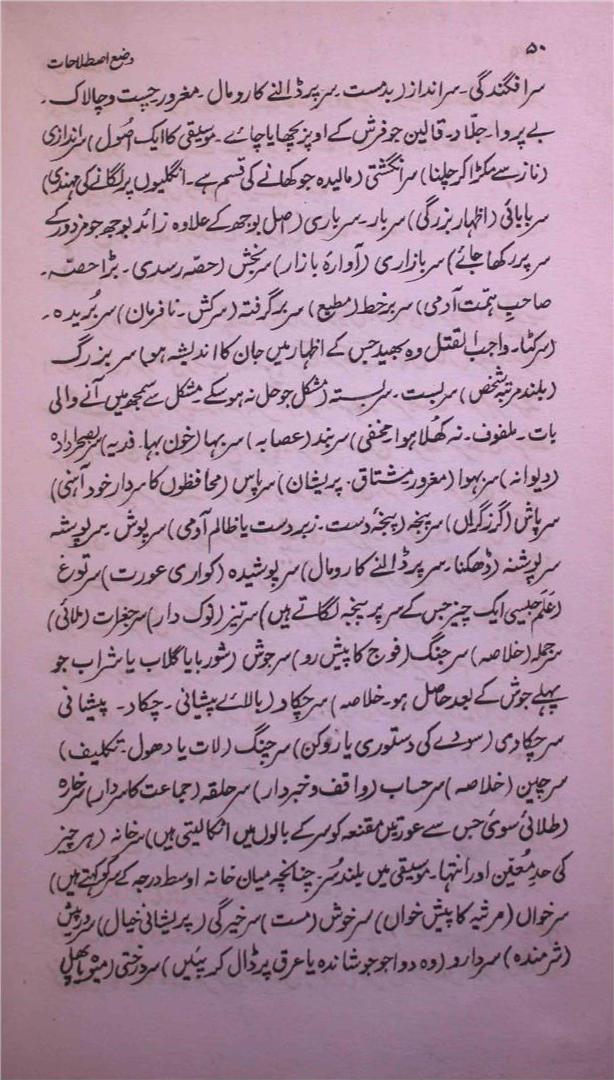 ۵۰
وضع اصطلاحات
سرافگندگی۔ سرانداز (بدمست۔ سر پر ڈالنے کا رومال۔ مغرور۔ چست و چالاک۔
بے پروا۔ جلّاد۔ قالین جو فرش کے اوپر بچھایا جائے۔ موسیقی کا ایک اصُول) سراندازی
(ناز سے مکڑا کر چلنا) سرانگشتی (مالیدہ جو کھانے کی قسم ہے۔ انگلیوں پر لگانے کی مہندی)
سربابائی (اظہار بزرگی) سربار۔ سرباری (اصل بوجھ کے علاوہ زائد بوجھ جو مزدور کے
سر پر رکھا جائے) سربازاری (آوارۂ بازار) سربخش (حصّہ رسدی۔ بڑا حصّہ۔
صاحبِ ہمّت آدمی) سربرخط (مطیع) سربرگرفتہ (سرکش۔ نافرمان) سربُریدہ۔
(سرکٹا۔ واجب القتل وہ بھید جس کے اظہار میں جان کا اندیشہ ہو) سربزرگ
(بلند مرتبہ شخص) سربست۔ سربستہ (مشکل جو حل نہ ہو سکے۔ مشکل سے سمجھ میں آنے والی
بات۔ ملفوف۔ نہ کھُلا ہوا۔ مخفی) سربند (عصابہ) سربہا (خون بہا۔ فدیہ) سربصحرا دادہ
(دیوانہ) سربہوا (مغرور۔ مشتاق۔ پریشان) سرپاس (محافظوں کا سردار۔ خود آہنی)
سرپاش (گرز گراں) سرپنجہ (پنجۂ دست۔ زبردست یا ظالم آدمی) سرپوش۔ سرپوشہ
سرپوشنہ (ڈھکنا۔ سر پر ڈالنے کا رومال) سرپوشیدہ (کواری عورت) سرتوغ
(عَلَم جیسی ایک چیز جس کے سر پر پنجہ لگاتے ہیں) سرتیز (نوک دار) سرجغرات (ملائی)
سرجملہ (خلاصہ) سرجنگ (فوج کا پیش رو) سرجوش (شوربا یا گلاب یا شراب جو
پہلے جوش کے بعد حاصل ہو۔ خلاصہ) سرچکاد (بالائے پیشانی۔ چکاد۔ پیشانی
سرچکادی (سودے کی دستوری یا روکن) سرچنگ (لات یا دھول۔ تکلیف)
سرچین (خلاصہ) سرحساب (واقف و خبردار) سرحلقہ (جماعت کا سردار) سرخارہ
(طلائی سوئی جس سے عورتیں مقنعہ کو سر کے بالوں میں اٹکا لیتی ہیں) سرخانہ (ہر چیز
کی حدِ مُعیّن اور انتہا۔ موسیقی میں بلند سُر۔ چنانچہ میان خانہ اوسط درجہ کے سر کو کہتے ہیں)
سرخواں (مرثیہ کا پیش خواں) سرخوش (مست) سرخیرگی (پریشانی خیال) سردرپیش
(شرمندہ) سردارو (وہ دوا جو جوشاندہ یا عرق پر ڈال کر پیئیں) سردرختی (میوہ یا پھل